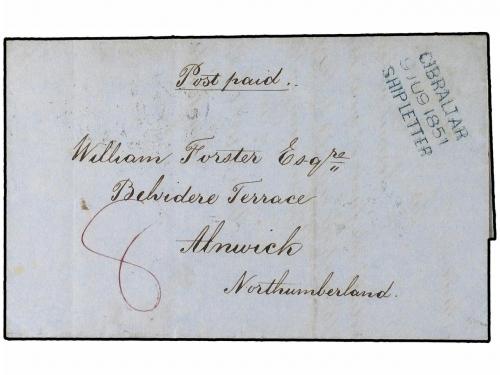 Post paid..
GIBRALTAR
9 JU9 1851
SHIP LETTER
William Forster Esqre
Belvidere Terrace
Alnwick
Northumberland.
8